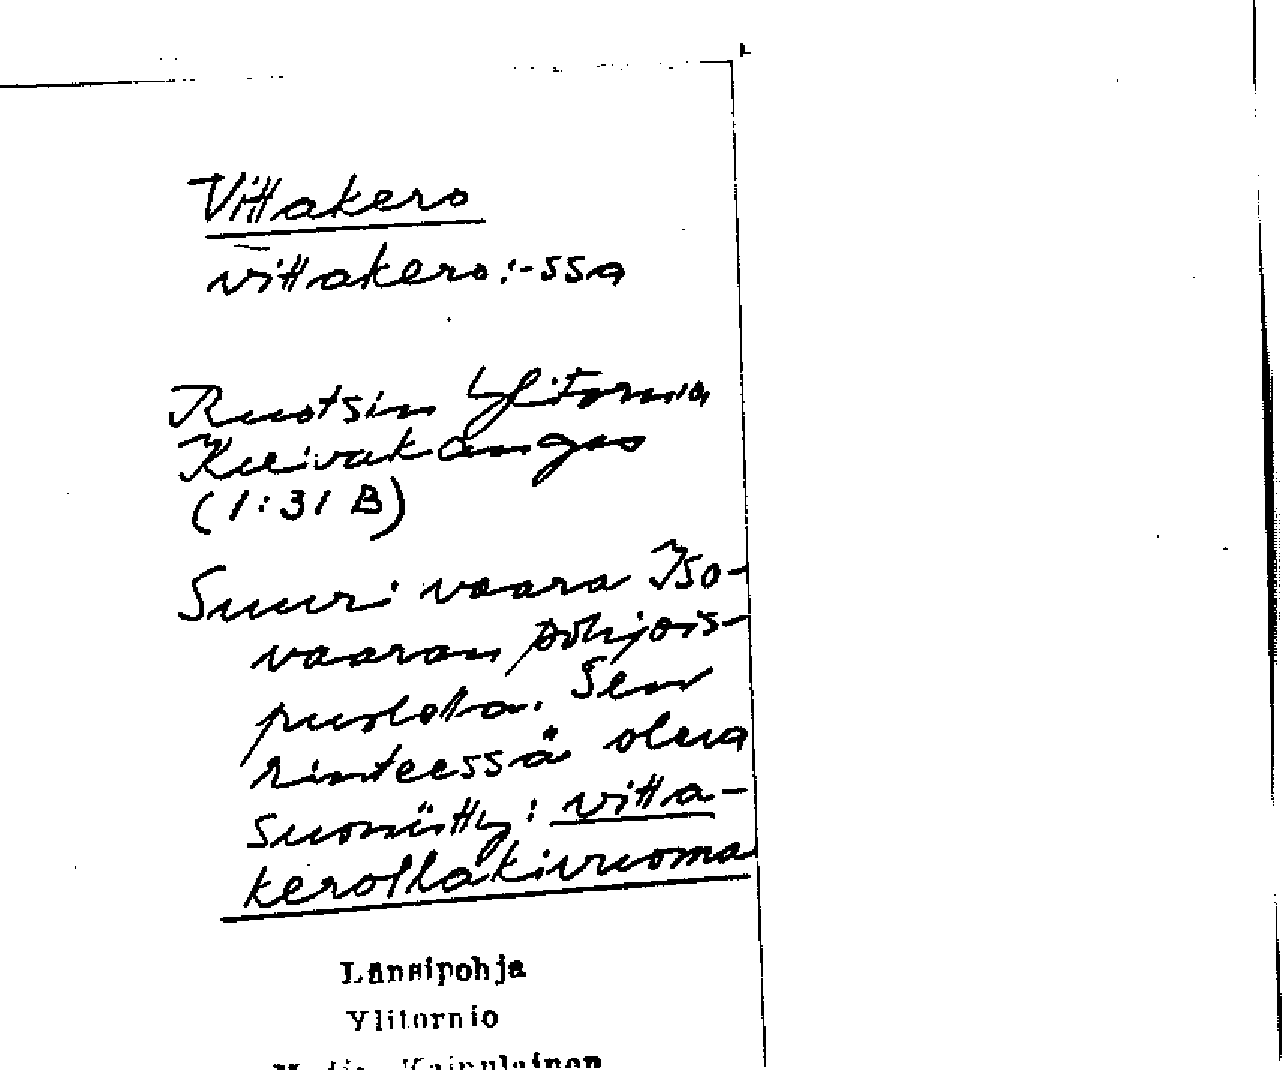 Vittakero
vittakero:-ssa
Ruotsin Ylitornio
Kuivakangas
(1:31 B)
Suuri vaara Iso-
vaaran pohjois-
puolella. Sen
rinteessä oleva
suoniitty: vitta-
kerollakivuoma
Länsipohja
Ylitornio